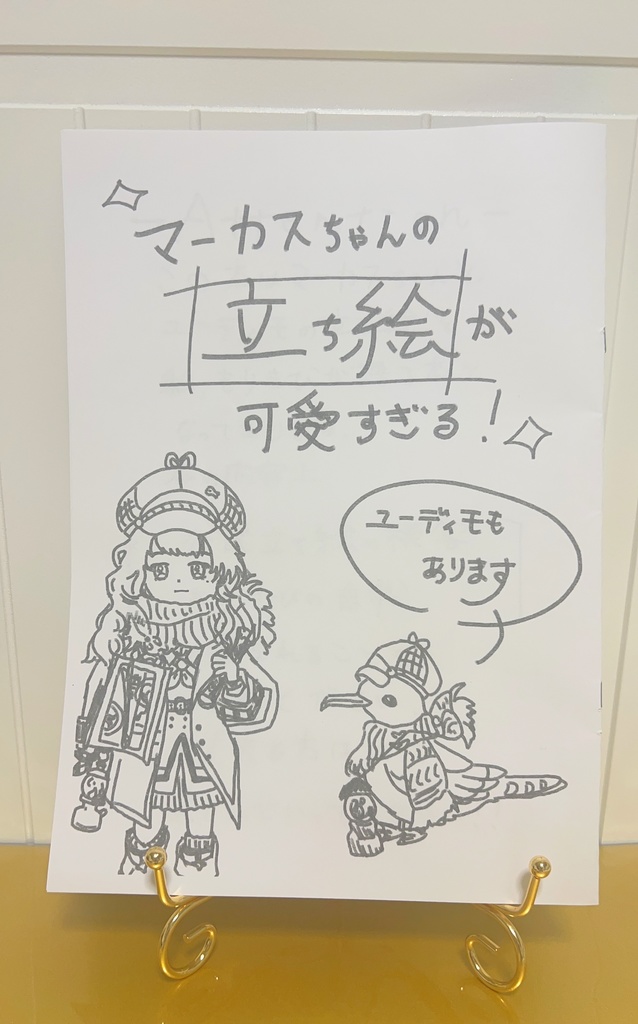 マーカスちゃんの
立ち絵が
可愛すぎる!
ユーディモも
あります